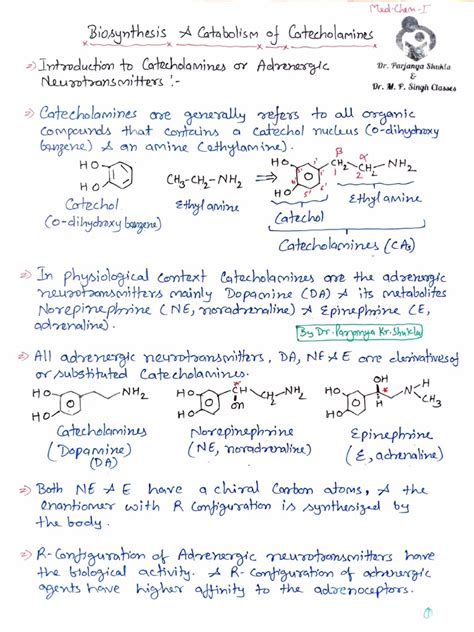 Med-Chem-I
Biosynthesis & Catabolism of Catecholamines
⇒ Introduction to Catecholamines or Adrenergic
Neurotransmitters :-
Dr. Parjanya Shukla
&
Dr. M. P. Singh Classes
⇒ Catecholamines are generally refers to all organic
compounds that contains a catechol nucleus (o-dihydroxy
benzene) & an amine (ethylamine).
HO
HO
Catechol
(o-dihydroxy benzene)
CH₃-CH₂-NH₂
Ethylamine
HO
HO
β α
CH₂-CH₂-NH₂
1 2
Ethylamine
Catechol
Catecholamines (CAs)
⇒ In physiological context Catecholamines are the adrenergic
neurotransmitters mainly Dopamine (DA) & its metabolites
Norepinephrine (NE, noradrenaline) & Epinephrine (E,
adrenaline).
By Dr. Parjanya Kr. Shukla
⇒ All adrenergic neurotransmitters, DA, NE & E are derivatives of
or substituted Catecholamines.
HO
HO
NH₂
Catecholamines
(Dopamine)
(DA)
HO
HO
*
CH
OH
CH₂
NH₂
Norepinephrine
(NE, noradrenaline)
HO
HO
OH
*
H
N
CH₃
Epinephrine
(E, adrenaline)
⇒ Both NE & E have a chiral Carbon atoms, & the
enantiomer with R Configuration is synthesized by
the body.
⇒ R-Configuration of Adrenergic neurotransmitters have
the biological activity. & R-Configuration of adrenergic
agents have higher affinity to the adrenoceptors.
1